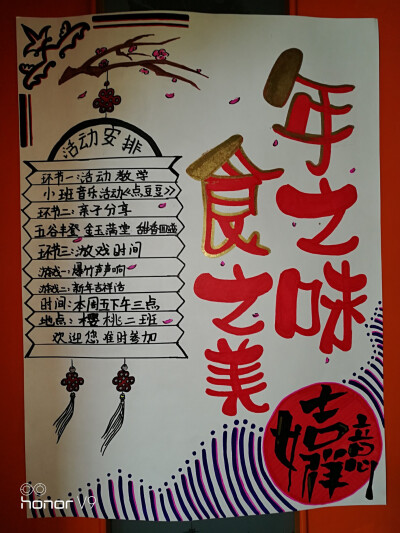 年之味
食之美
活动安排
环节一：活动教学
小班音乐活动《点豆豆》
环节二：亲子分享
五谷丰登 金玉满堂 甜香四溢
环节三：游戏时间
游戏一：爆竹声声响
游戏二：新年吉祥话
时间：本周五下午三点
地点：樱桃二班
欢迎您准时参加
吉祥如意
honor V9